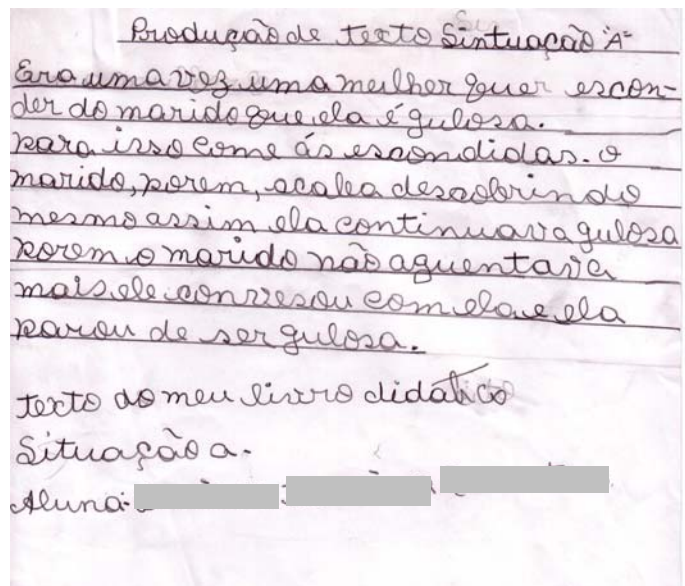 Produção de texto Sintuação "A"
Era uma vez uma meilher quer escon-
der do marido que ela é gulosa.
para isso come ás escondidas. O
marido, porem, acaba descobrindo
mesmo assim ela continuava gulosa
porem o marido não aguentava
mais ele conversou com ela e ela
parou de ser gulosa.
texto do meu livro didático
Situação a.
Aluna: